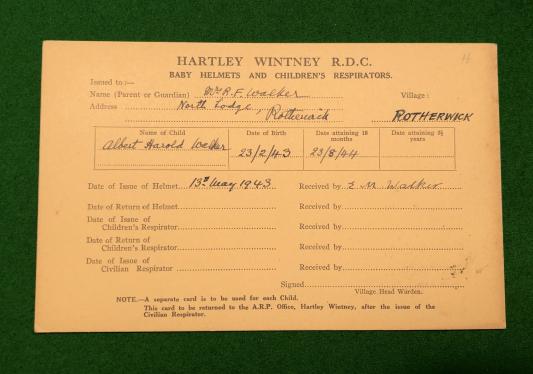 HARTLEY WINTNEY R.D.C.
BABY HELMETS AND CHILDREN'S RESPIRATORS.
Issued to :—
Name (Parent or Guardian) Mr R.F. Walker Village :
Address North Lodge, Rotherwick ROTHERWICK
Name of Child Date of Birth Date attaining 18 months Date attaining 5½ years
Albert Harold Walker 23/2/43 23/8/44
Date of Issue of Helmet 13th May 1943 Received by E M Walker
Date of Return of Helmet Received by
Date of Issue of
Children's Respirator Received by
Date of Return of
Children's Respirator Received by
Date of Issue of
Civilian Respirator Received by
Signed
Village Head Warden.
NOTE.—A separate card is to be used for each Child.
This card to be returned to the A.R.P. Office, Hartley Wintney, after the issue of the
Civilian Respirator.